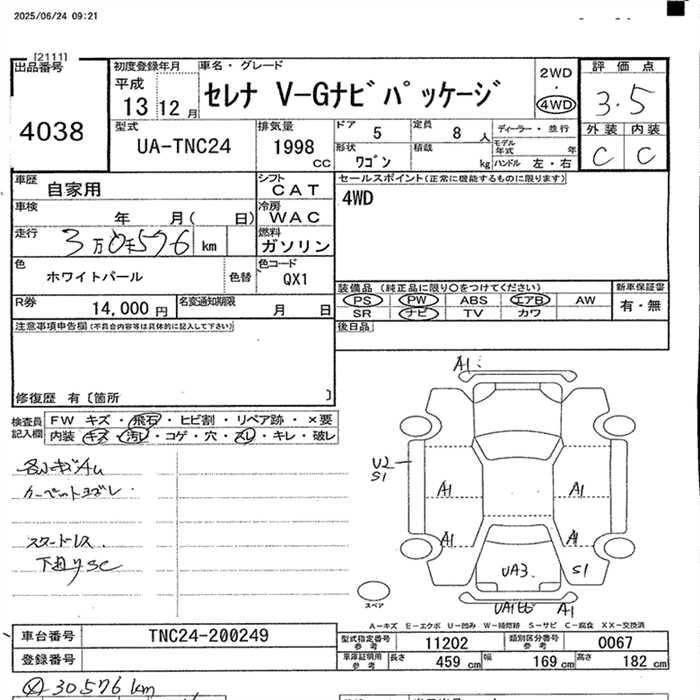 2025/06/24 09:21
[2111]
出品番号
4038
初度登録年月
平成
13 12 月
車名・グレード
セレナ V-Gナビパッケージ
2WD
・
4WD
評価点
3.5
外装 内装
C C
型式
UA-TNC24
排気量
1998
CC
ドア
5
定員
8 人
形状
ワゴン
積載
kg
ディーラー・並行
モデル年式 年
ハンドル 左・右
車歴
自家用
シフト
CAT
車検
年 月( 日)
冷房
WAC
走行
3万0千576 km
燃料
ガソリン
色
ホワイトパール
色替
色コード
QX1
R券
14,000 円
名変通知期限
月 日
セールスポイント(正常に機能するものに限ります)
4WD
装備品 (純正品に限り〇をつけてください)
PS PW ABS エアB AW
SR ナビ TV カワ
新車保証書
有・無
後日品
注意事項申告欄(不具合内容等は具体的に記入して下さい)
修復歴 有〔箇所 〕
検査員記入欄
FW キズ・飛石・ヒビ割・リペア跡・×要
内装 キズ・汚レ・コゲ・穴・スレ・キレ・破レ
各小キズAu
カーペットヨゴレ.
スタッドレス.
下廻りSC
A1
U2
S1
A1
A1
A1
A1
UA3
S1
A1
スペア
A-キズ E-エクボ U-凹み W-補修跡 S-サビ C-腐食 XX-交換済
車台番号
TNC24-200249
登録番号
型式指定番号
参考
11202
類別区分番号
参考
0067
車庫証明用
参考
長さ
459 cm
幅
169 cm
高さ
182 cm
30576 km